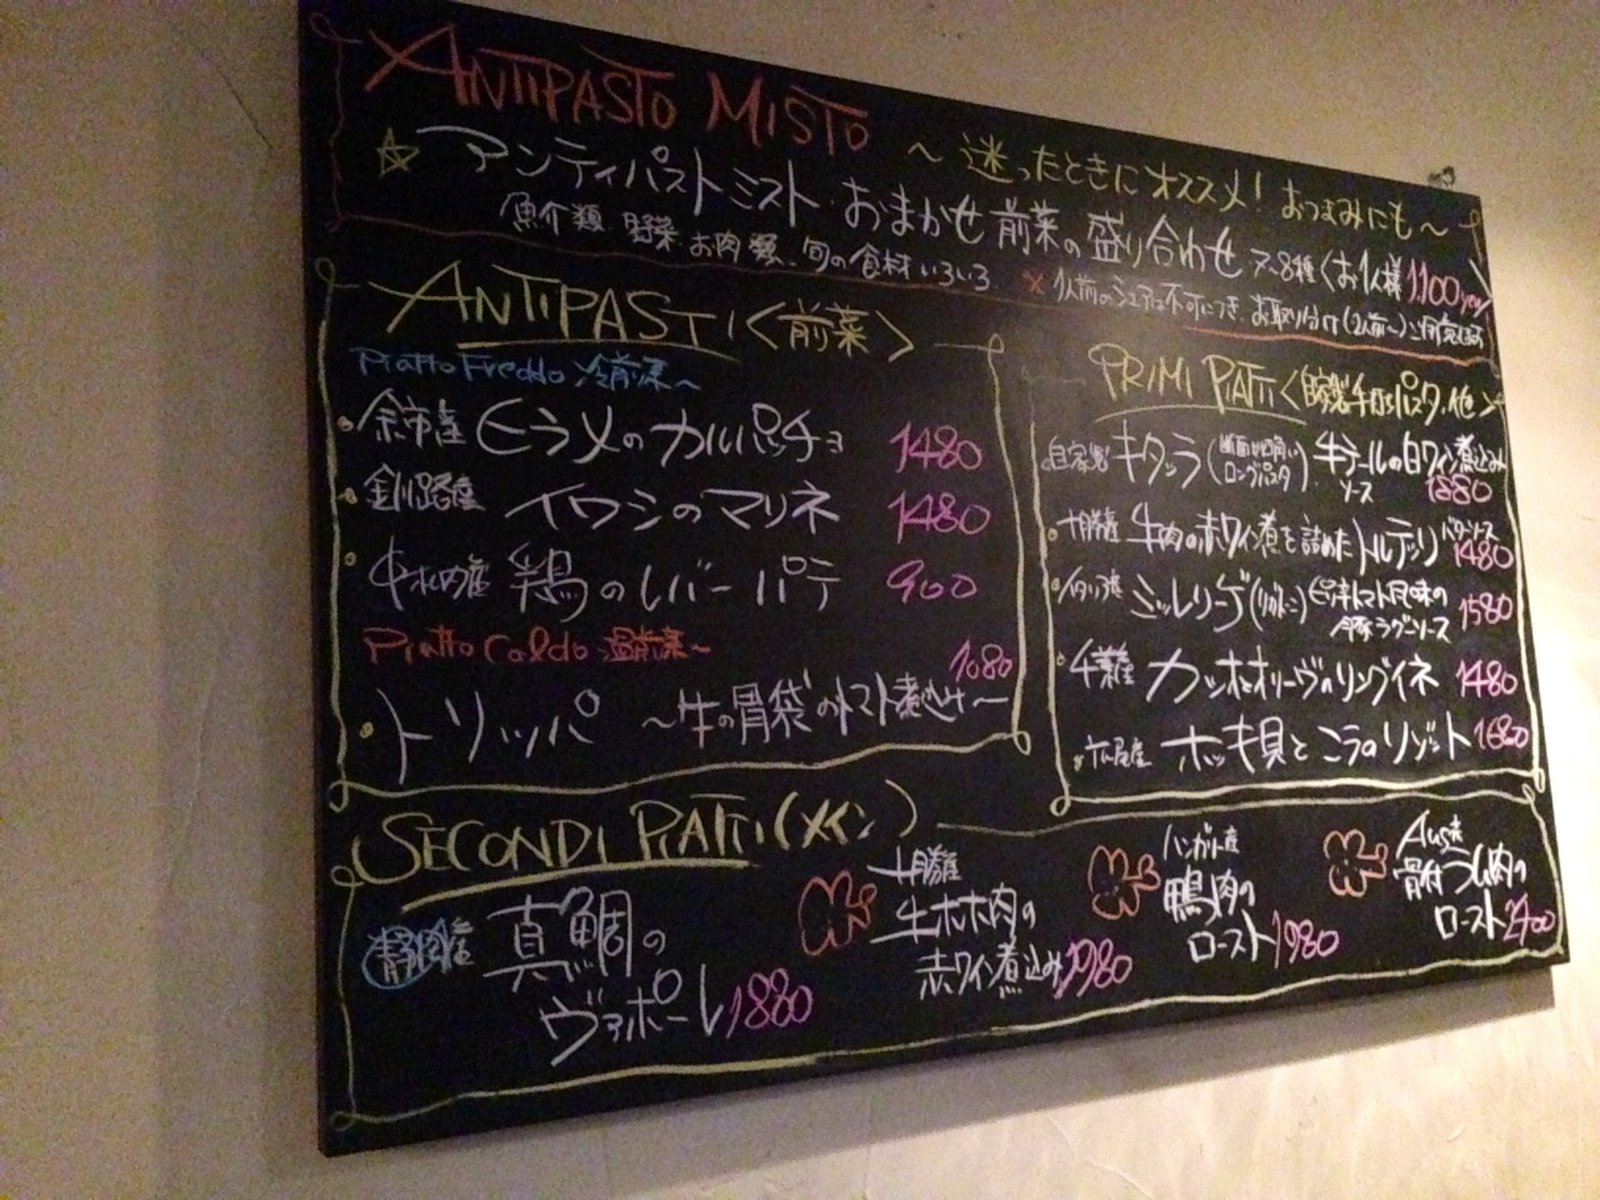 ANTIPASTO MISTO
～迷ったときにオススメ！おつまみにも～
☆ アンティパストミスト・おまかせ前菜の盛り合わせ 7~8種〈お1人様1,100yen〉
魚介類、野菜、お肉類、旬の食材いろいろ
※1人前のシェアは不可につき、お取り分け(2人前~)
ANTIPASTI〈前菜〉
Piatto Freddo 冷前菜～
・余市産 ヒラメのカルパッチョ 1480
・釧路産 イワシのマリネ 1480
・中札内産 鶏のレバーパテ 900
Piatto Caldo 温前菜～
1080
・トリッパ ～牛の胃袋のトマト煮込み～
PRIMI PIATTI〈自家製手打ちパスタ・他〉
・自家製 キタッラ(断面が四角いロングパスタ) 牛テールの白ワイン煮込み
ソース 1880
・十勝産 牛肉の赤ワイン煮を詰めたトルテッリ バターソース 1480
・イタリア産 ミッレリーゲ(リガトーニ) ピリ辛トマト風味の
ラグーソース 1580
・千葉産 カツオとオリーヴのリングイネ 1480
・広尾産 ホッキ貝とニラのリゾット 1680
SECONDI PIATTI(メイン)
静岡産 真鯛の
ヴァポーレ 1880
十勝産
牛ホホ肉の
赤ワイン煮込み 1980
ハンガリー産
鴨肉の
ロースト 1980
Aus産
骨付うし肉の
ロースト 2400